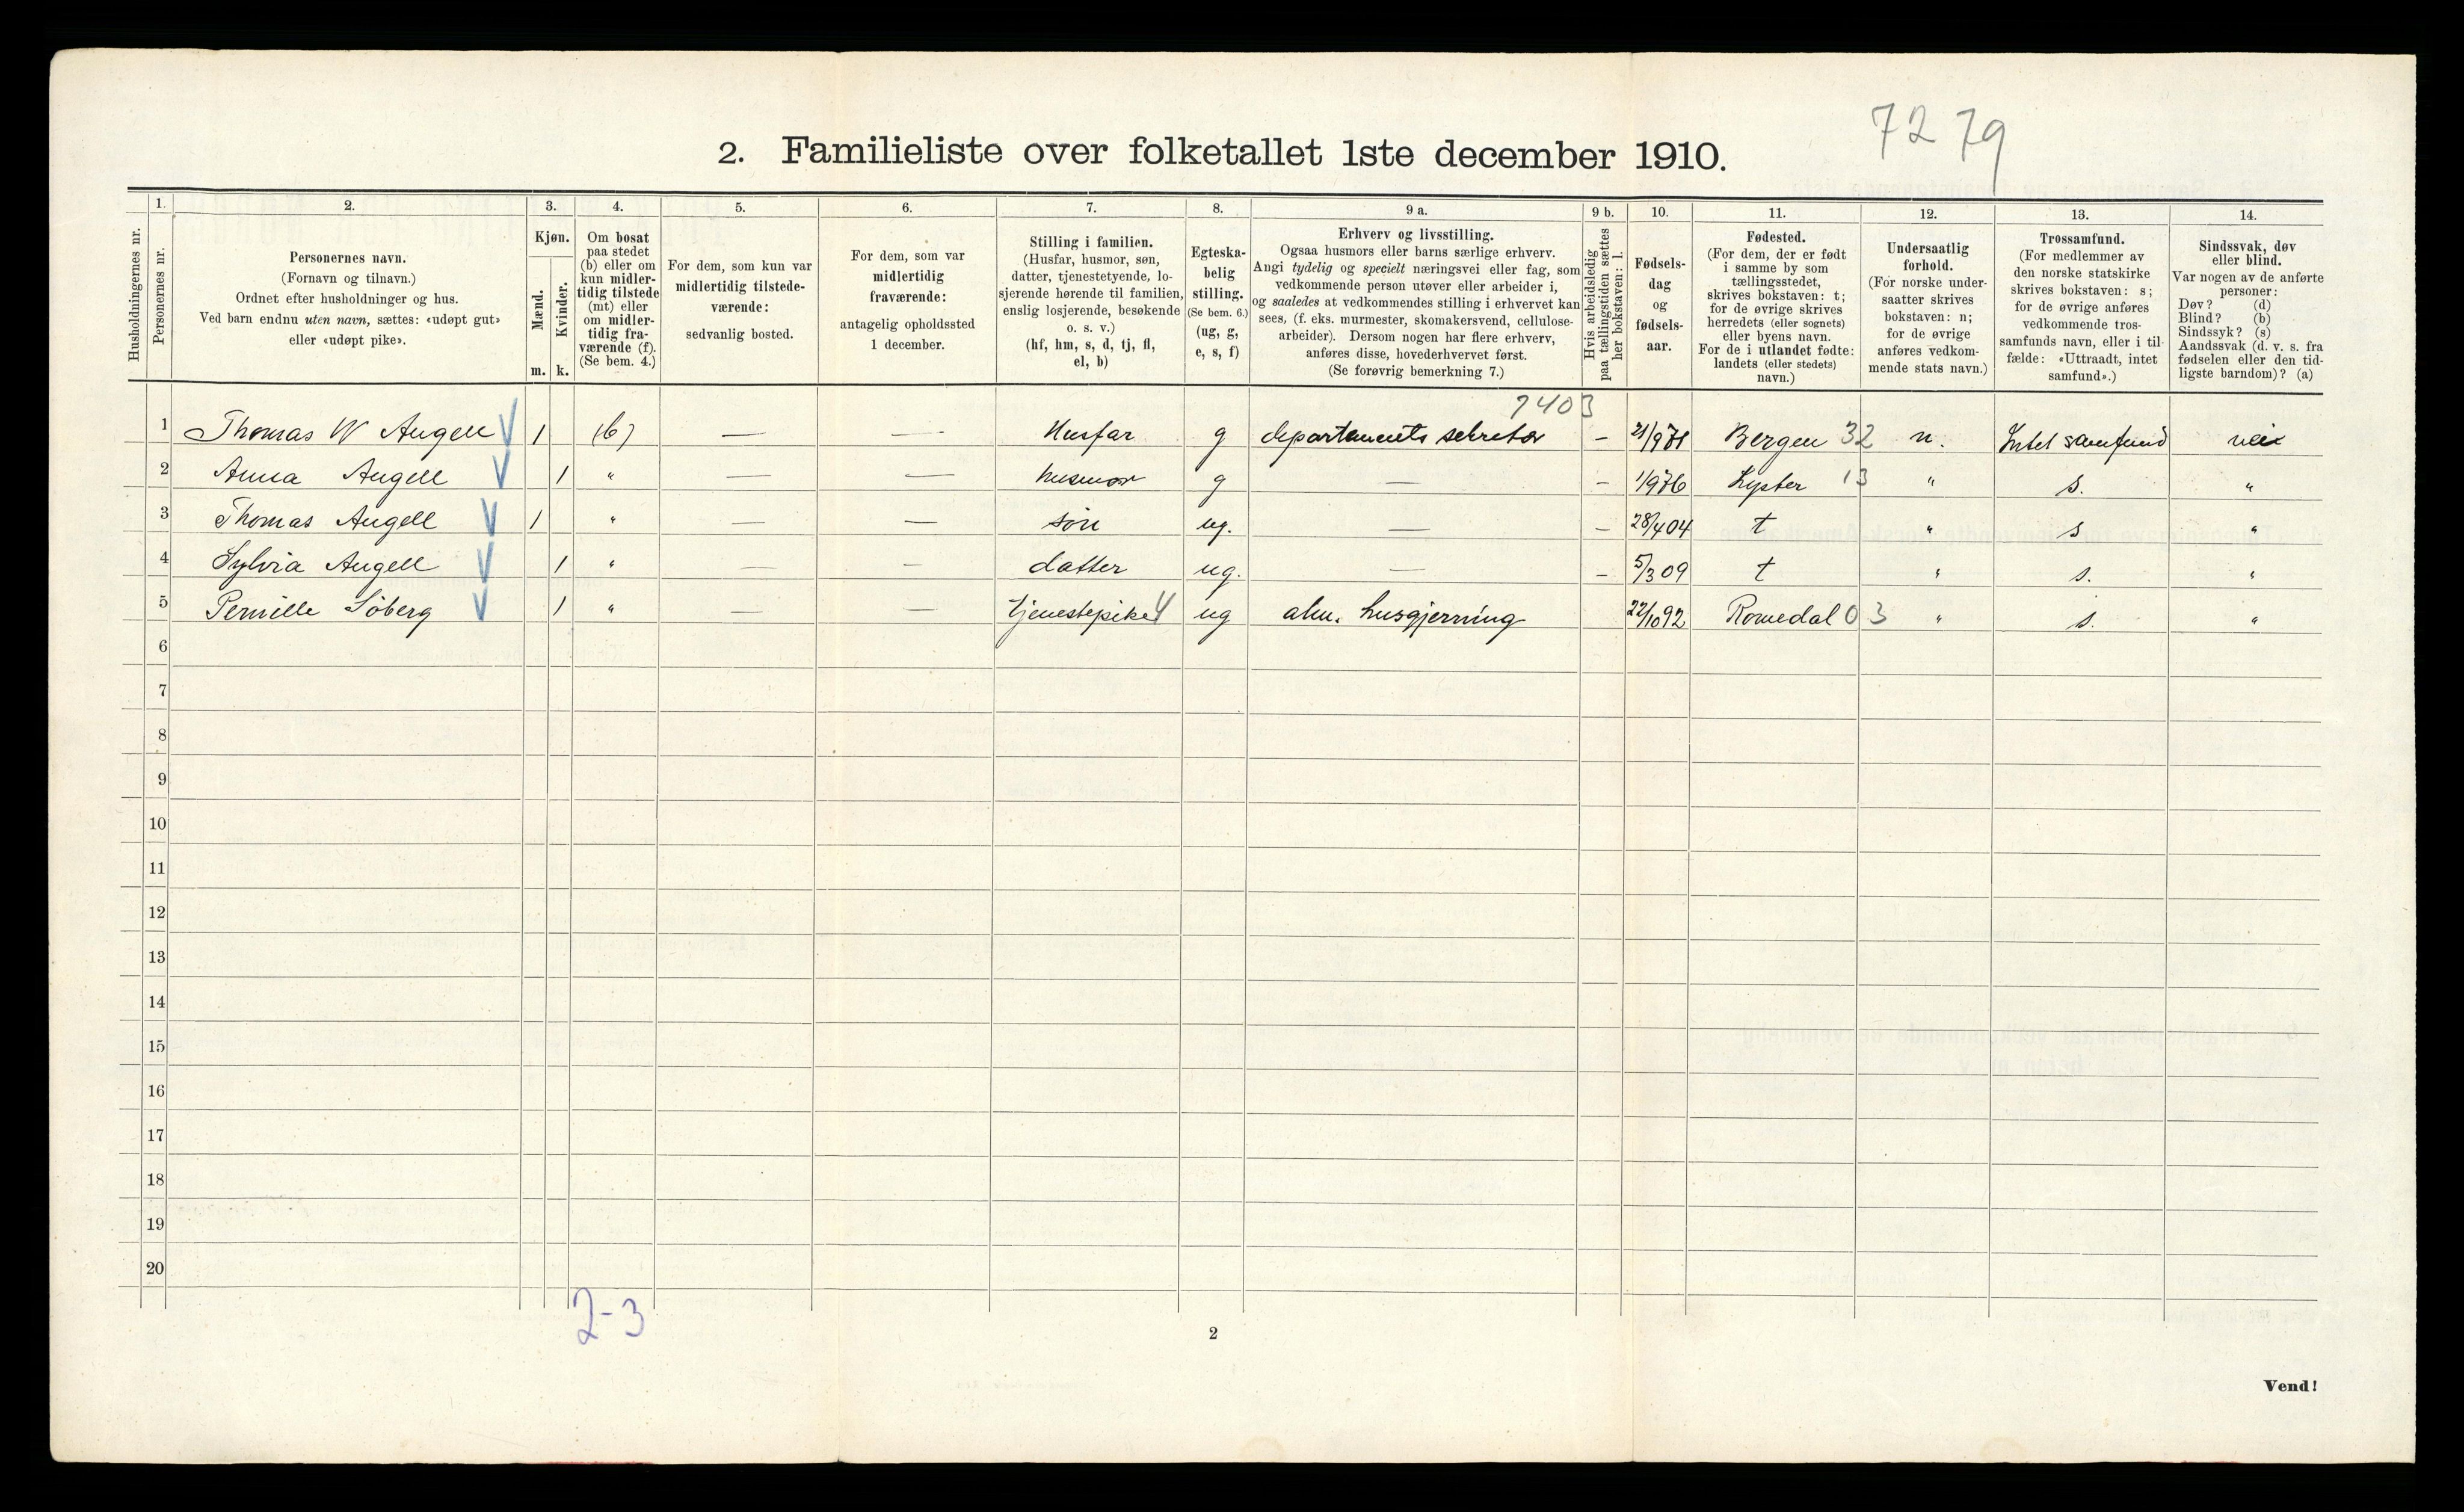 7279
2. Familieliste over folketallet 1ste december 1910.
Husholdningernes nr.
1. Personernes nr.
2. Personernes navn.
(Fornavn og tilnavn.)
Ordnet efter husholdninger og hus.
Ved barn endnu uten navn, sættes: «udøpt gut»
eller «udøpt pike».
3. Kjøn.
Mænd. m.
Kvinder. k.
4. Om bosat
paa stedet
(b) eller om
kun midler-
tidig tilstede
(mt) eller
om midler-
tidig fra-
værende (f).
(Se bem. 4.)
5. For dem, som kun var
midlertidig tilstede-
værende:
sedvanlig bosted.
6. For dem, som var
midlertidig
fraværende:
antagelig opholdssted
1 december.
7. Stilling i familien.
(Husfar, husmor, søn,
datter, tjenestetyende, lo-
sjerende hørende til familien,
enslig losjerende, besøkende
o. s. v.)
(hf, hm, s, d, tj, fl,
el, b)
8. Egteska-
belig
stilling.
(Se bem. 6.)
(ug, g,
e, s, f)
9 a. Erhverv og livsstilling.
Ogsaa husmors eller barns særlige erhverv.
Angi tydelig og specielt næringsvei eller fag, som
vedkommende person utøver eller arbeider i,
og saaledes at vedkommendes stilling i erhvervet kan
sees, (f. eks. murmester, skomakersvend, cellulose-
arbeider). Dersom nogen har flere erhverv,
anføres disse, hovederhvervet først.
(Se forøvrig bemerkning 7.)
9 b. Hvis arbeidsledig
paa tællingstiden sættes
her bokstaven: l.
10. Fødsels-
dag
og
fødsels-
aar.
11. Fødested.
(For dem, der er født
i samme by som
tællingsstedet,
skrives bokstaven: t;
for de øvrige skrives
herredets (eller sognets)
eller byens navn.
For de i utlandet fødte:
landets (eller stedets)
navn.)
12. Undersaatlig
forhold.
(For norske under-
saatter skrives
bokstaven: n;
for de øvrige
anføres vedkom-
mende stats navn.)
13. Trossamfund.
(For medlemmer av
den norske statskirke
skrives bokstaven: s;
for de øvrige anføres
vedkommende tros-
samfunds navn, eller i til-
fælde: «Uttraadt, intet
samfund».)
14. Sindssvak, døv
eller blind.
Var nogen av de anførte
personer:
Døv? (d)
Blind? (b)
Sindssyk? (s)
Aandssvak (d. v. s. fra
fødselen eller den tid-
ligste barndom)? (a)
7403
1 Thomas W Angell V 1 (b) — — Husfar g departements sekretær – 21/9 71 Bergen 32 n. Intet samfund nei
2 Anna Angell V 1 " — — husmor g — – 1/9 76 Lyster 13 " s. "
3 Thomas Angell V 1 " — — søn ug. — – 28/4 04 t " s "
4 Sylvia Angell V 1 " — — datter ug. — – 5/3 09 t " s. "
5 Pernille Söberg V 1 " — — tjenestepike 4 ug alm. husgjerning 22/10 92 Romedal 03 " s. "
6
7
8
9
10
11
12
13
14
15
16
17
18
19
20
2-3
2
Vend!